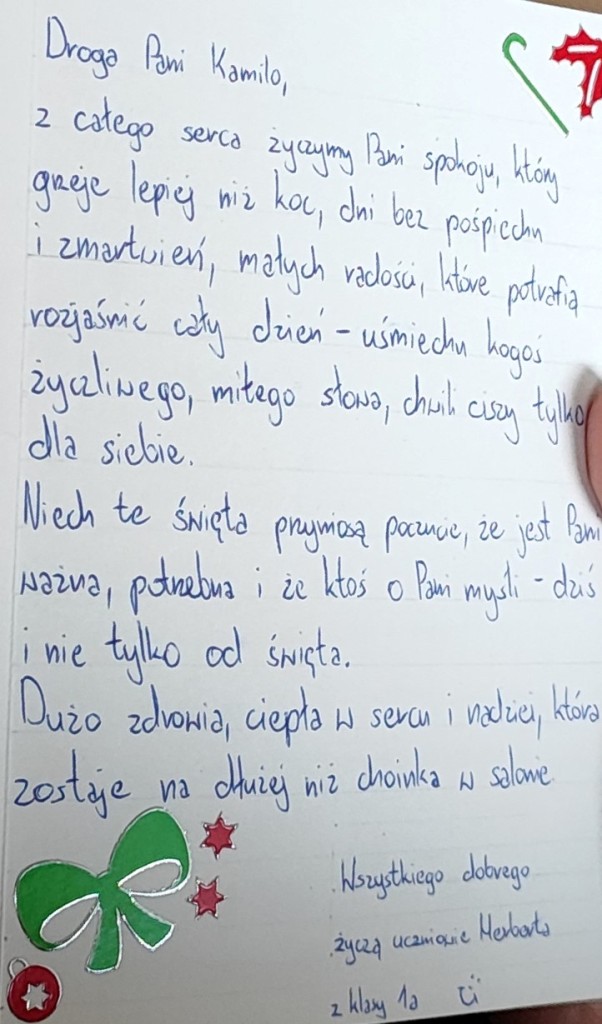 Droga Pani Kamilo,
z całego serca życzymy Pani spokoju, który
grzeje lepiej niż koc, dni bez pośpiechu
i zmartwień, małych radości, które potrafią
rozjaśnić cały dzień - uśmiechu kogoś
życzliwego, miłego słowa, chwili ciszy tylko
dla siebie.
Niech te święta przyniosą poczucie, że jest Pani
ważna, potrzebna i że ktoś o Pani myśli - dziś
i nie tylko od święta.
Dużo zdrowia, ciepła w sercu i nadziei, która
zostaje na dłużej niż choinka w salonie
Wszystkiego dobrego
życzą uczniowie Herberta
z klasy 1a